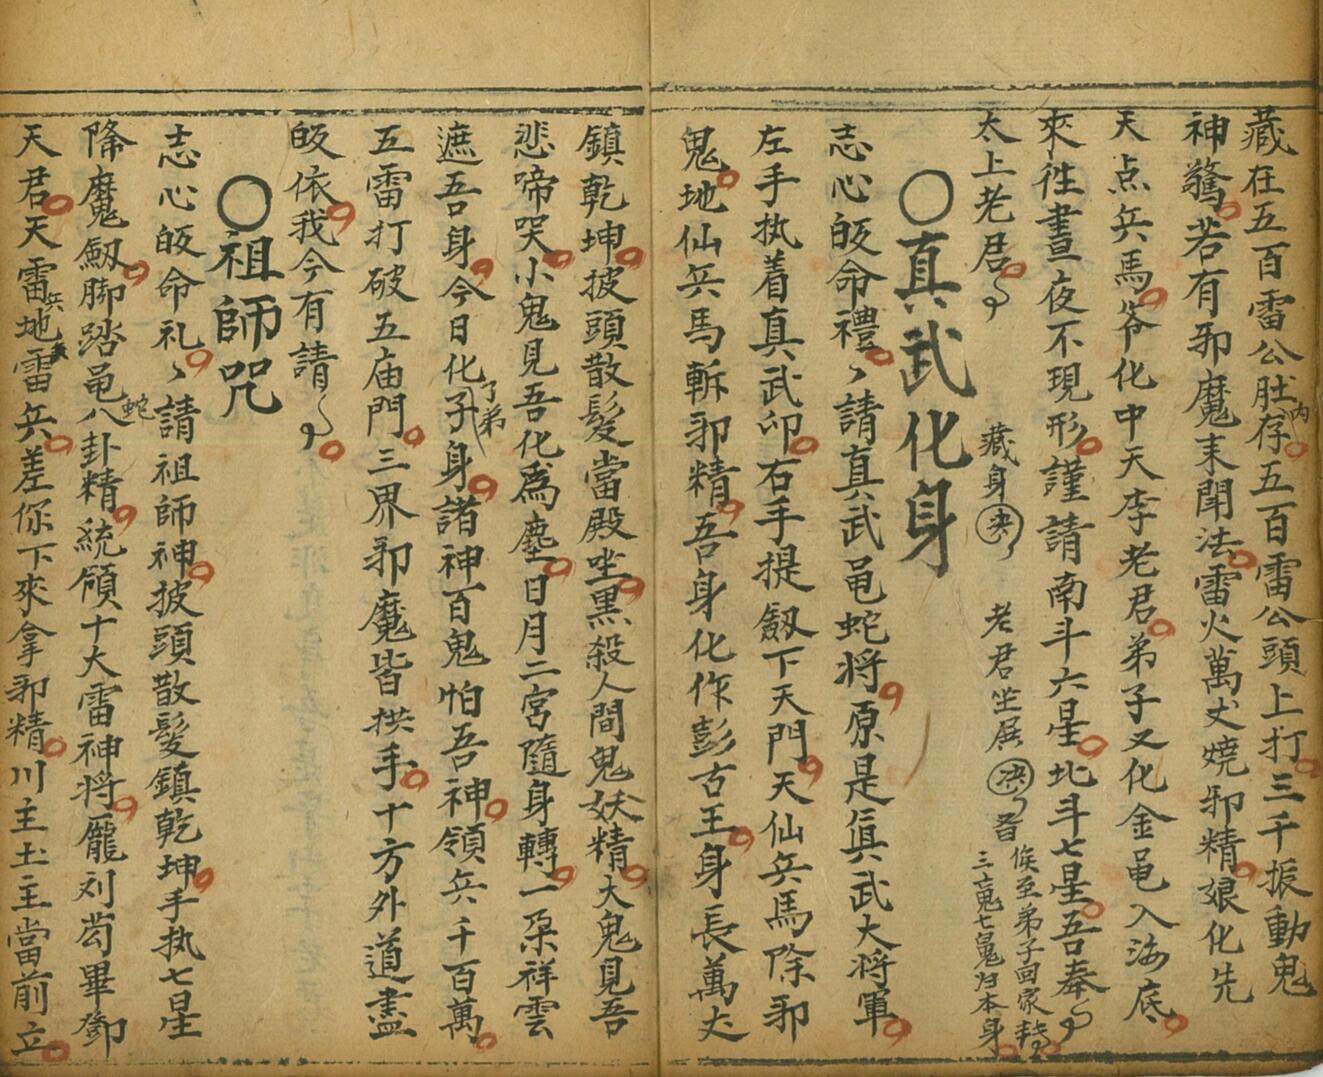 藏在五百雷公肚内存五百雷公頭上打三千振動鬼
神驚若有邪魔来聞法雷火萬丈燒邪精娘化先
天点兵馬爷化中天李老君弟子又化金黾入海底
來徃晝夜不現形謹請南斗六星北斗七星吾奉
太上老君 藏身决 老君坐居决
俟至弟子回家轉
三魂七魄归本身
〇真武化身
志心皈命禮請真武黾蛇将原是真武大将軍
左手执着真武印右手提劔下天門天仙兵馬除邪
鬼地仙兵馬斬邪精吾身化作彭古王身長萬丈
鎮乾坤披頭散髮當殿坐黑殺人間鬼妖精大鬼見吾
悲啼哭小鬼見吾化為塵日月二宮隨身轉一朶祥雲
遮吾身今日化了弟子身諸神百鬼怕吾神領兵千百萬
五雷打破五庙門三界邪魔皆拱手十方外道盡
皈依我今有請
〇祖師咒
志心皈命礼請祖師神披頭散髮鎮乾坤手执七星
降魔劔脚踏黾蛇八卦精統領十大雷神将龐刘苟畢鄧
天君天雷兵地雷兵差你下來拿邪精川主土主當前立